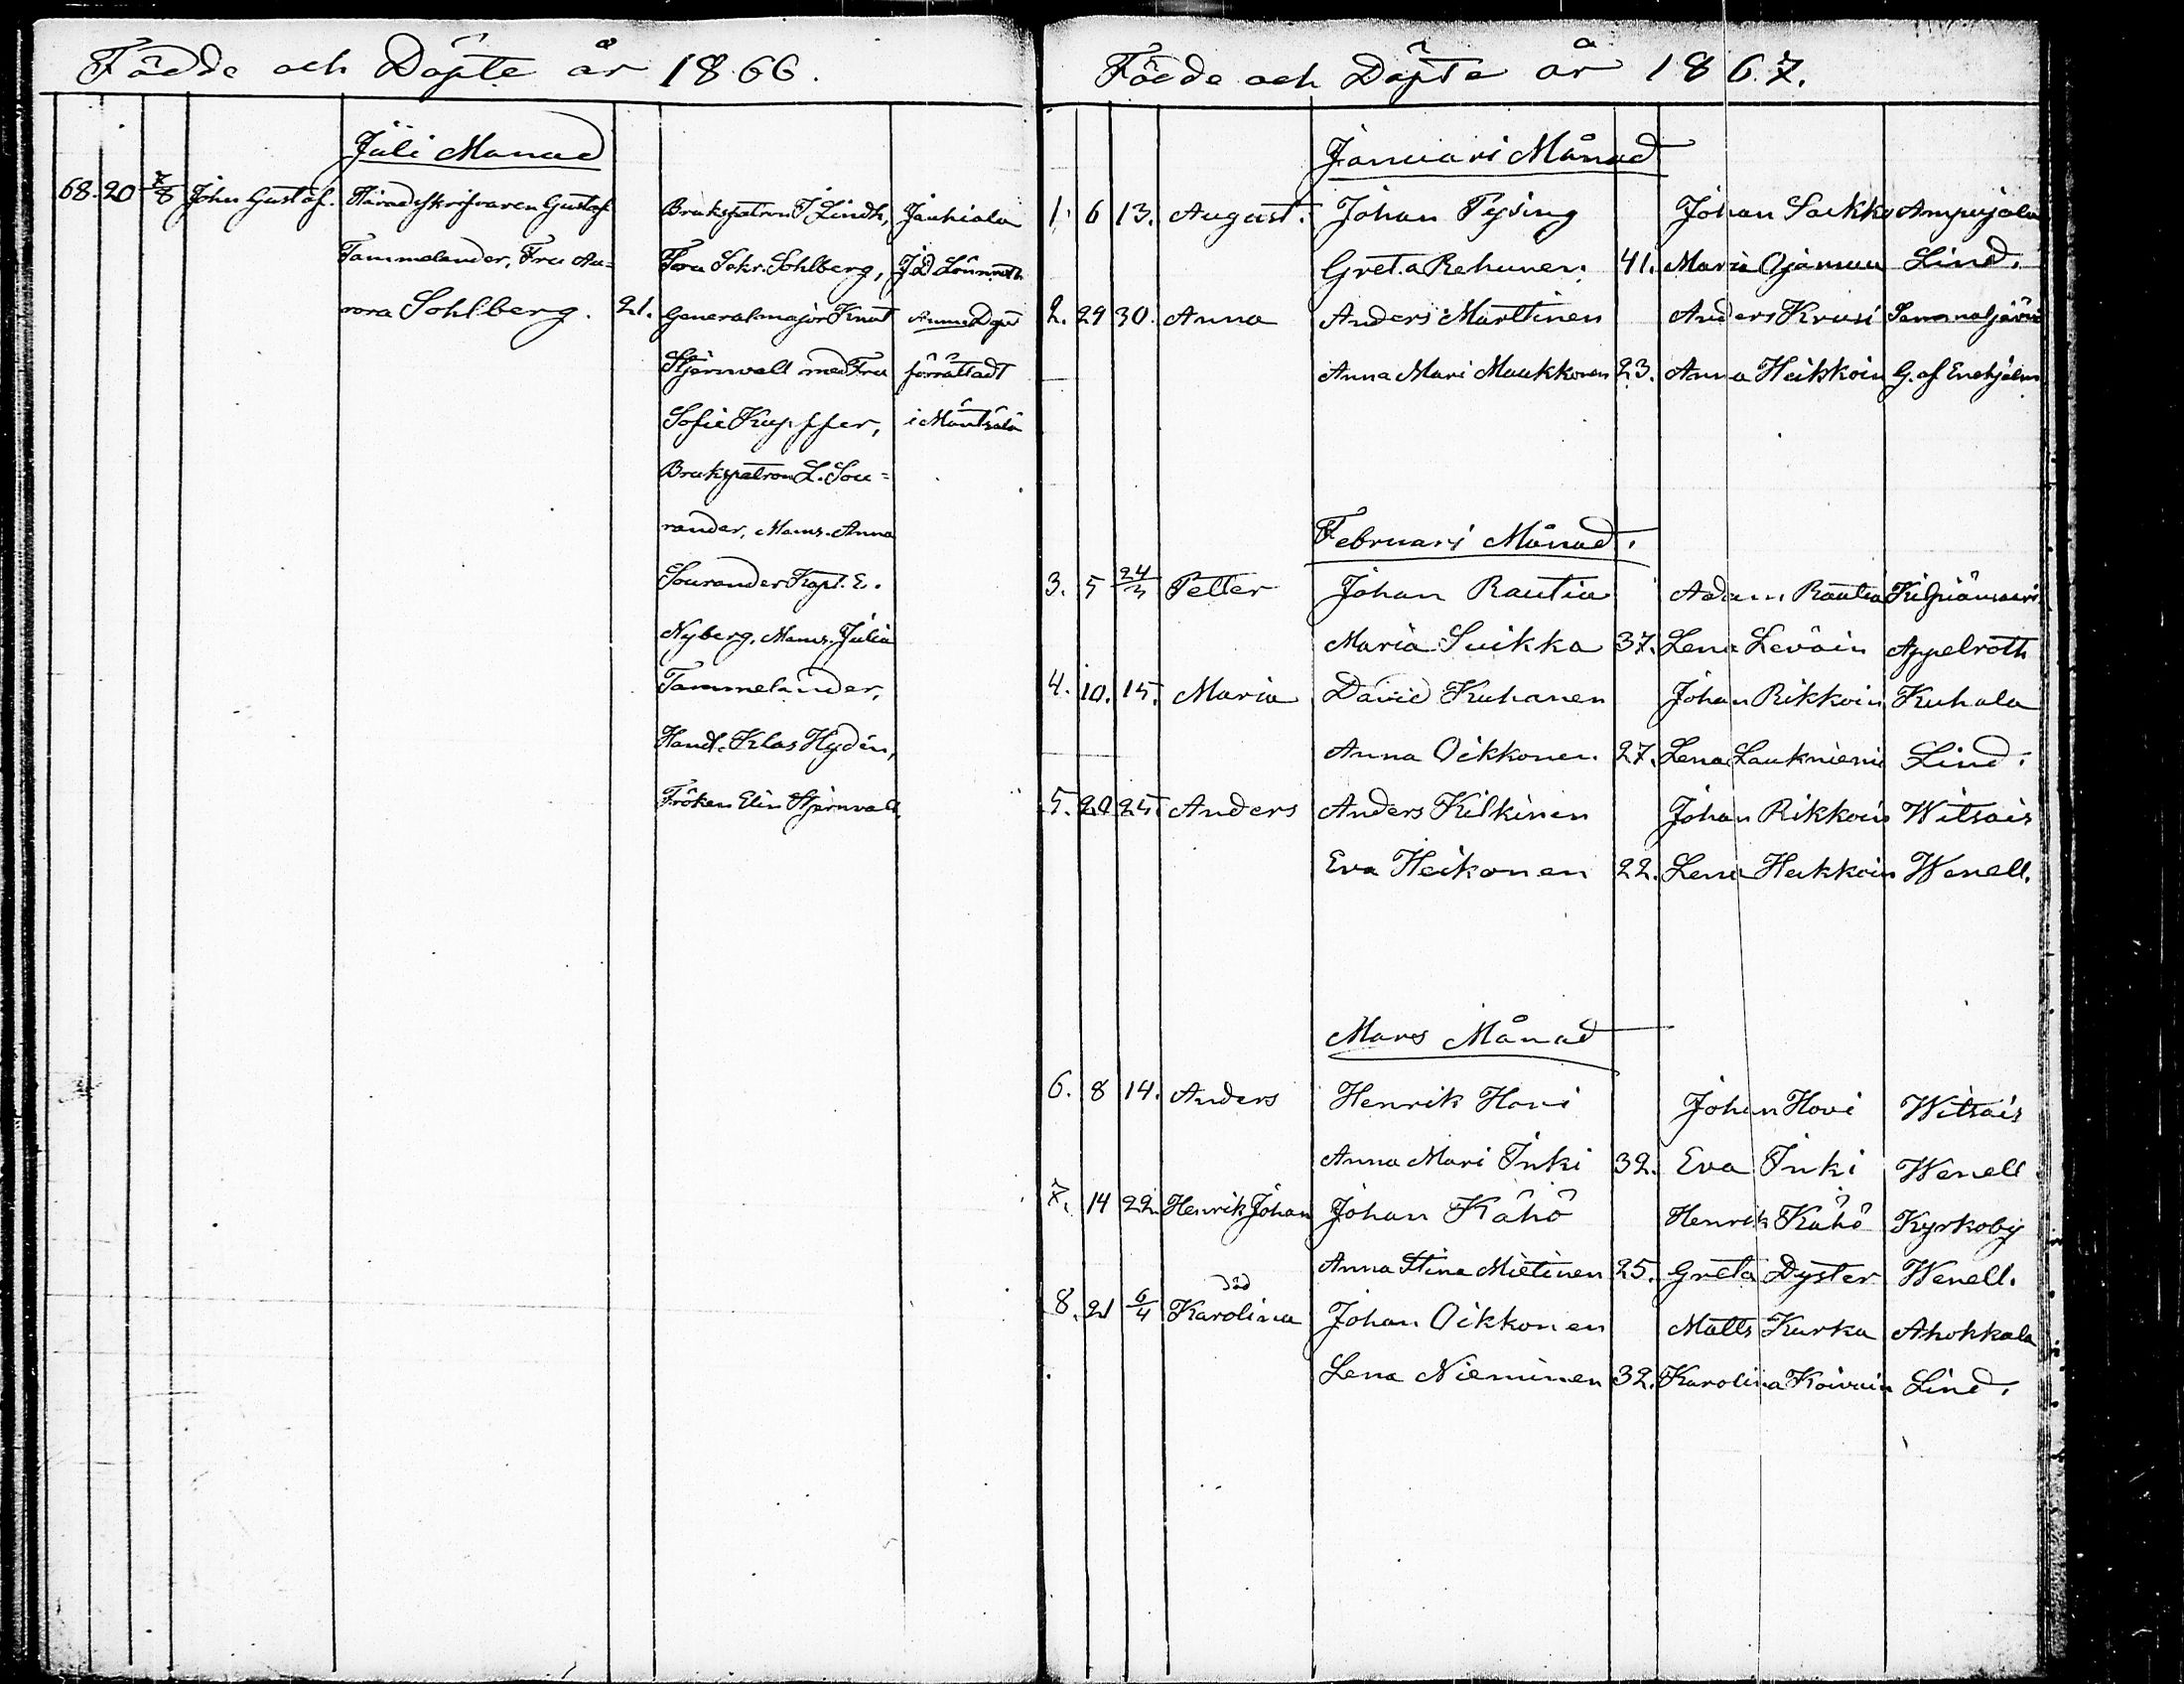 Födde och Döpte år 1866.
Juli Månad
68. 20 7/8 John Gustaf. Häradskrifvaren Gustaf Brukspatron J Lindh, Jauhiala
Tammelander, Fru Au= Fru Sekr. Sohlberg, J D Lönnroth
rora Sohlberg. 21. Generalmajor Knut Anm. Dopet
Stjernvall med Fru förrättadt
Sofie Kupffer, i Mäntsälä
Brukspatron L. Sou=
rander, Mams. Anna
Sourander Kapt. E.
Nyberg, Mams. Julia
Tammelander,
Handl. Klas Hydén,
Fröken Elin Stjernvall.
Födde och Döpte år 1867.
Januari Månad
1. 6 13. August. Johan Pysing Johan Sackko Ampujala
Greta Rehunen. 41. Maria Ojamuu Lind.
2. 29 30. Anna Anders Marttinen Anders Kruusi Sammaljärvi
Anna Mari Muukkonen 23. Anna Heikkoin G. af Enehjelm
Februari Månad.
3. 5 24/3 Petter Johan Rautia Adam Rautia Kiljiänsaari
Maria Suikka 37. Lena Leväin Appelroth
4. 10. 15. Maria David Kuhanen Johan Rikkoin Kuhala
Anna Oikkonen 27. Lena Laukniemi Lind.
5. 20 25. Anders Anders Kilkinen Johan Rikkoin Witsais
Eva Heikonen 22. Lena Heikkoin Wenell.
Mars Månad
6. 8 14. Anders Henrik Hovi Johan Hovi Witsais
Anna Mari Inki 32. Eva Inki Wenell
7. 14 22. Henrik Johan Johan Kähö Henrik Kähö Kyrkoby
Anna Stina Mietinen 25. Greta Dyster Wenell.
död
8. 21 6/4 Karolina Johan Oikkonen Matts Kurka Ahokkala
Lena Nieminen 32. Karolina Koivuin Lind.